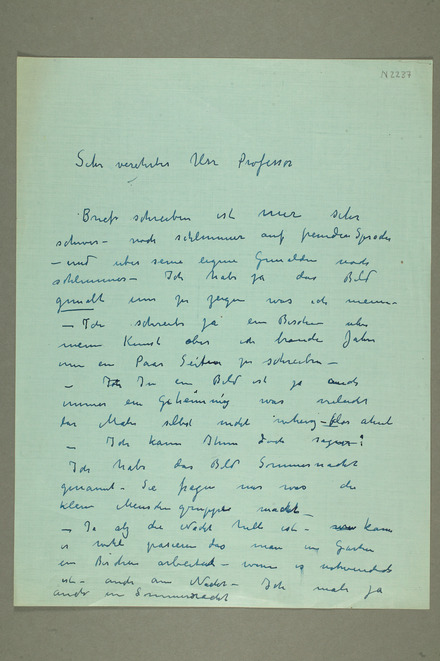 N 2237
Sehr verehrter Herr Professor
Briefe schreiben ist mir sehr
schwer – noch schlimmer auf fremder Sprache
– und über seine eigene Gemälden noch
schlimmer – Ich habe ja das Bild
gemalt um zu zeigen was ich meine –
– Ich schreibe ja ein Bischen über
meine Kunst aber ich brauche Jahre
um ein Paar Seiten zu schreiben –
– In ein Bild ist ja auch
immer ein Geheimniss was vielleicht
der Maler selbst nicht
– Ich kann Ihnen doch sagen:
Ich habe das Bild Sommernacht
genannt – Sie fragen mir was die
kleine Menschengruppe macht –
– Da ja die Nacht hell ist – kann
es wohl passieren das man im Garten
ein Bischen arbeitet – wenn es notwendig
ist – auch am Nacht – Ich male ja
auch in Sommernacht